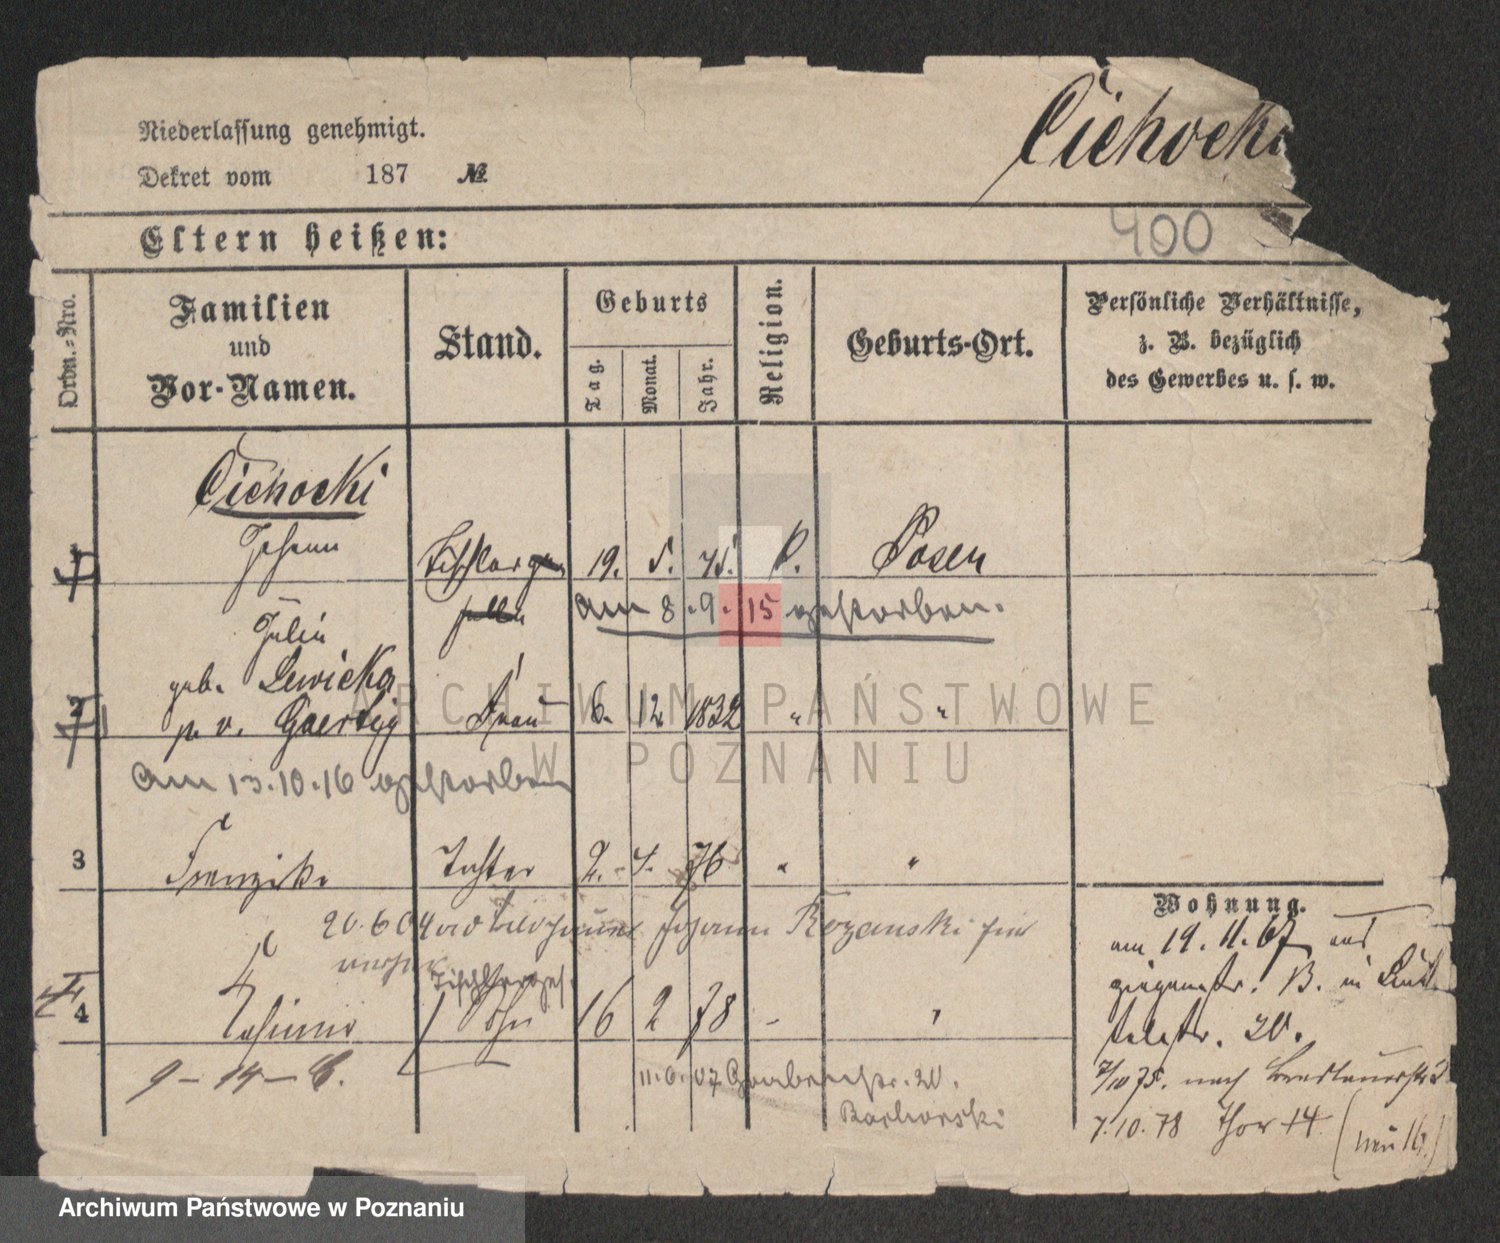 Niederlassung genehmigt.
Dekret vom 187 №
Cichocki
Eltern heißen:
400
Ordn.-Nro.
Familien
und
Vor-Namen.
Stand.
Geburts
Tag.
Monat.
Jahr.
Religion.
Geburts-Ort.
Persönliche Verhältnisse,
z. B. bezüglich
des Gewerbes u. s. w.
Cichocki
1 Johann 19. 5. 45. C. Posen
am 8.9.15 gestorben.
Julia
geb. Lewicka
2 p. v. Gaertig Frau 6. 12. 1832 " "
am 13.10.16 gestorben
3 Franziska Tochter 2. 4. 76 " "
20.6.04 Johann Rozanski
Tischlerges.
4 Casimir Sohn 16 2 78 - "
9-14-8.
11.6.07 Grabenstr. 20.
Wohnung.
am 19.11.67 aus
B. in
20.
7/10 75. nach Breslauerstr
7.10.78 Thor 14 (neu 16.)
ARCHIWUM PAŃSTWOWE
W POZNANIU
Archiwum Państwowe w Poznaniu